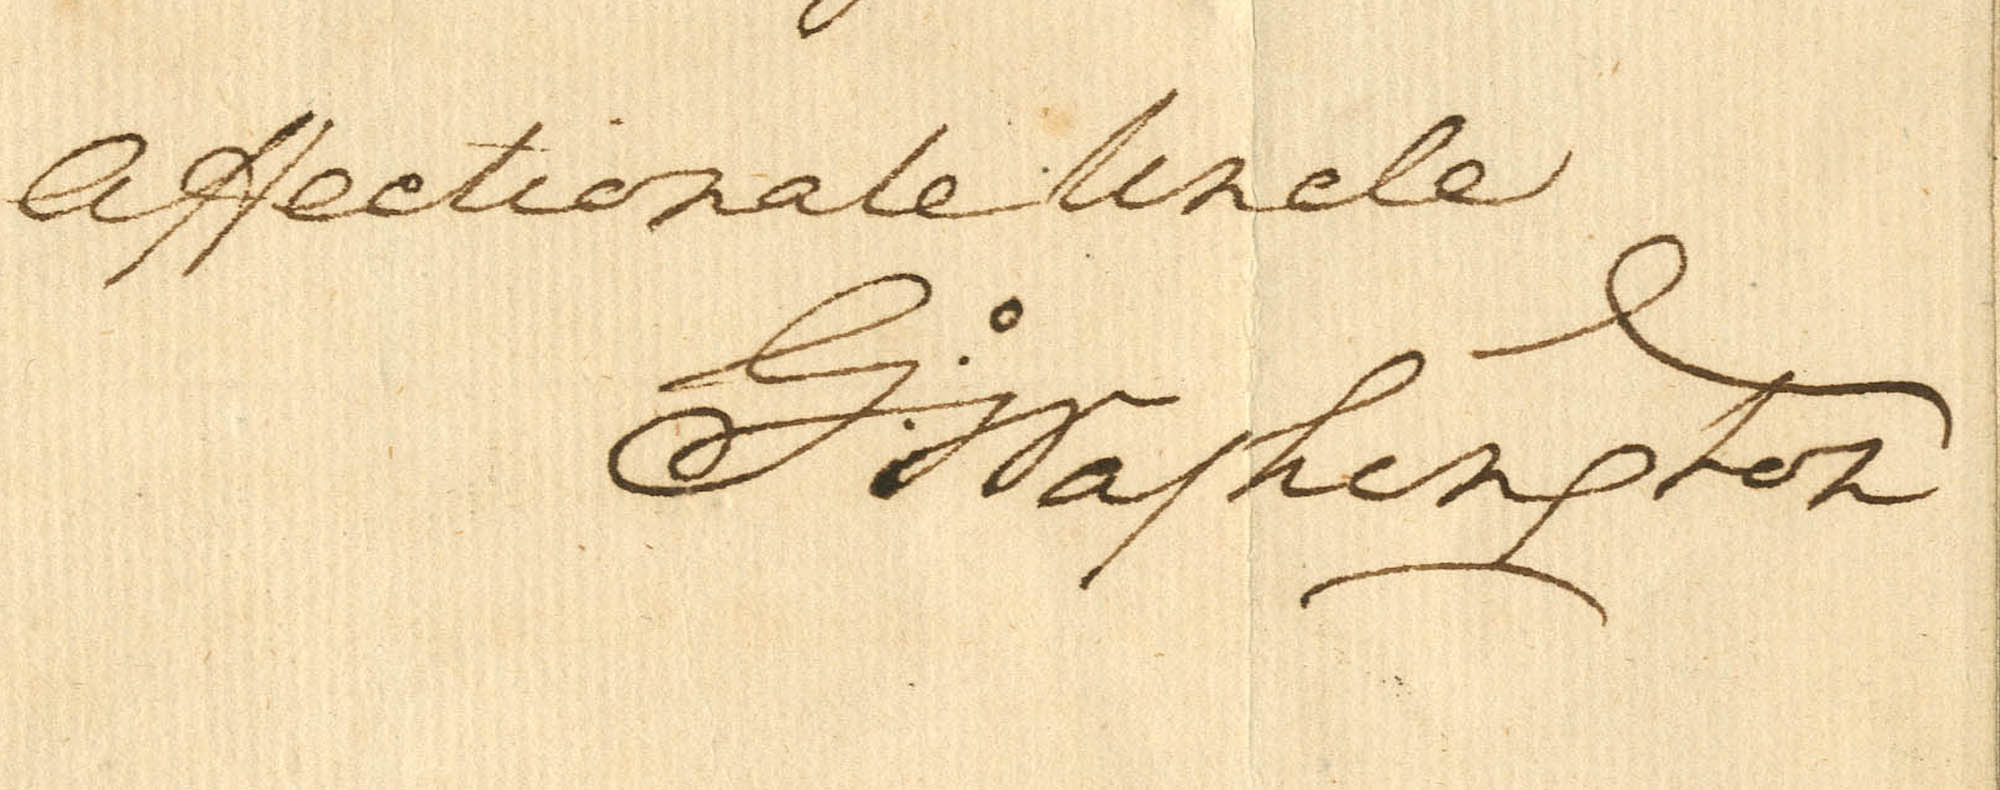 Affectionate Uncle
Go: Washington